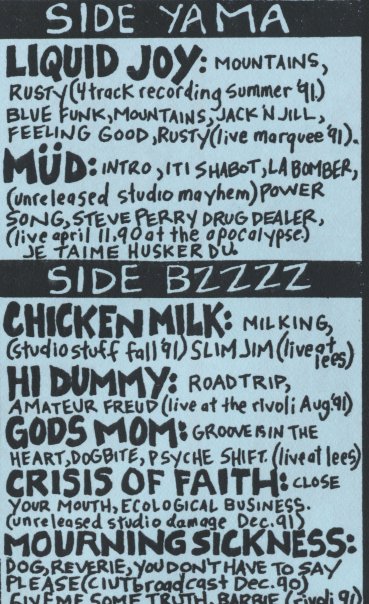 SIDE YAMA
LIQUID JOY: MOUNTAINS,
RUSTY (4 track recording Summer '91.)
BLUE FUNK, MOUNTAINS, JACK 'N JILL,
FEELING GOOD, RUSTY (live marquee '91).
MÜD: INTRO, ITI SHABOT, LA BOMBER,
(unreleased studio mayhem) POWER
SONG, STEVE PERRY DRUG DEALER,
(live april 11, 90 at the apocalypse.)
JE TAIME HUSKER DU.
SIDE BZZZZ
CHICKEN MILK: MILKING,
(Studio stuff fall '91) SLIM JIM (live at
lees)
HI DUMMY: ROADTRIP,
AMATEUR FREUD (live at the rivoli Aug. '91)
GODS MOM: GROOVE IS IN THE
HEART, DOGBITE, PSYCHE SHIFT. (live at lees)
CRISIS OF FAITH: CLOSE
YOUR MOUTH, ECOLOGICAL BUSINESS.
(unreleased studio damage Dec. 91)
MOURNING SICKNESS:
DOG, REVERIE, YOU DON'T HAVE TO SAY
PLEASE (CIUT broadcast Dec. 90)
GIVE ME SOME TRUTH, BARBIE (rivoli 91)